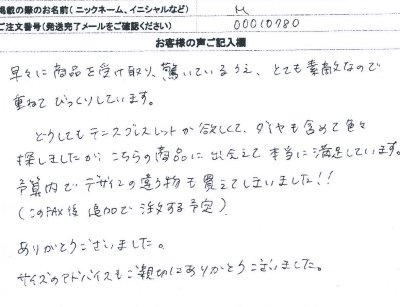 掲載の際のお名前(ニックネーム、イニシャルなど) M
ご注文番号(発送完了メールをご確認ください) 00010780
お客様の声ご記入欄
早々に商品を受け取り、驚いているうえ、とても素敵なので
重ねてびっくりしています。
どうしてもテニスブレスレットが欲しくて、ダイヤも含めて色々
探しましたが、こちらの商品に出会えて本当に満足しています。
予算内でデザインの違う物も買えてしまいました!!
(このFAX後 追加で注文する予定)
ありがとうございました。
サイズのアドバイスもご親切にありがとうございました。